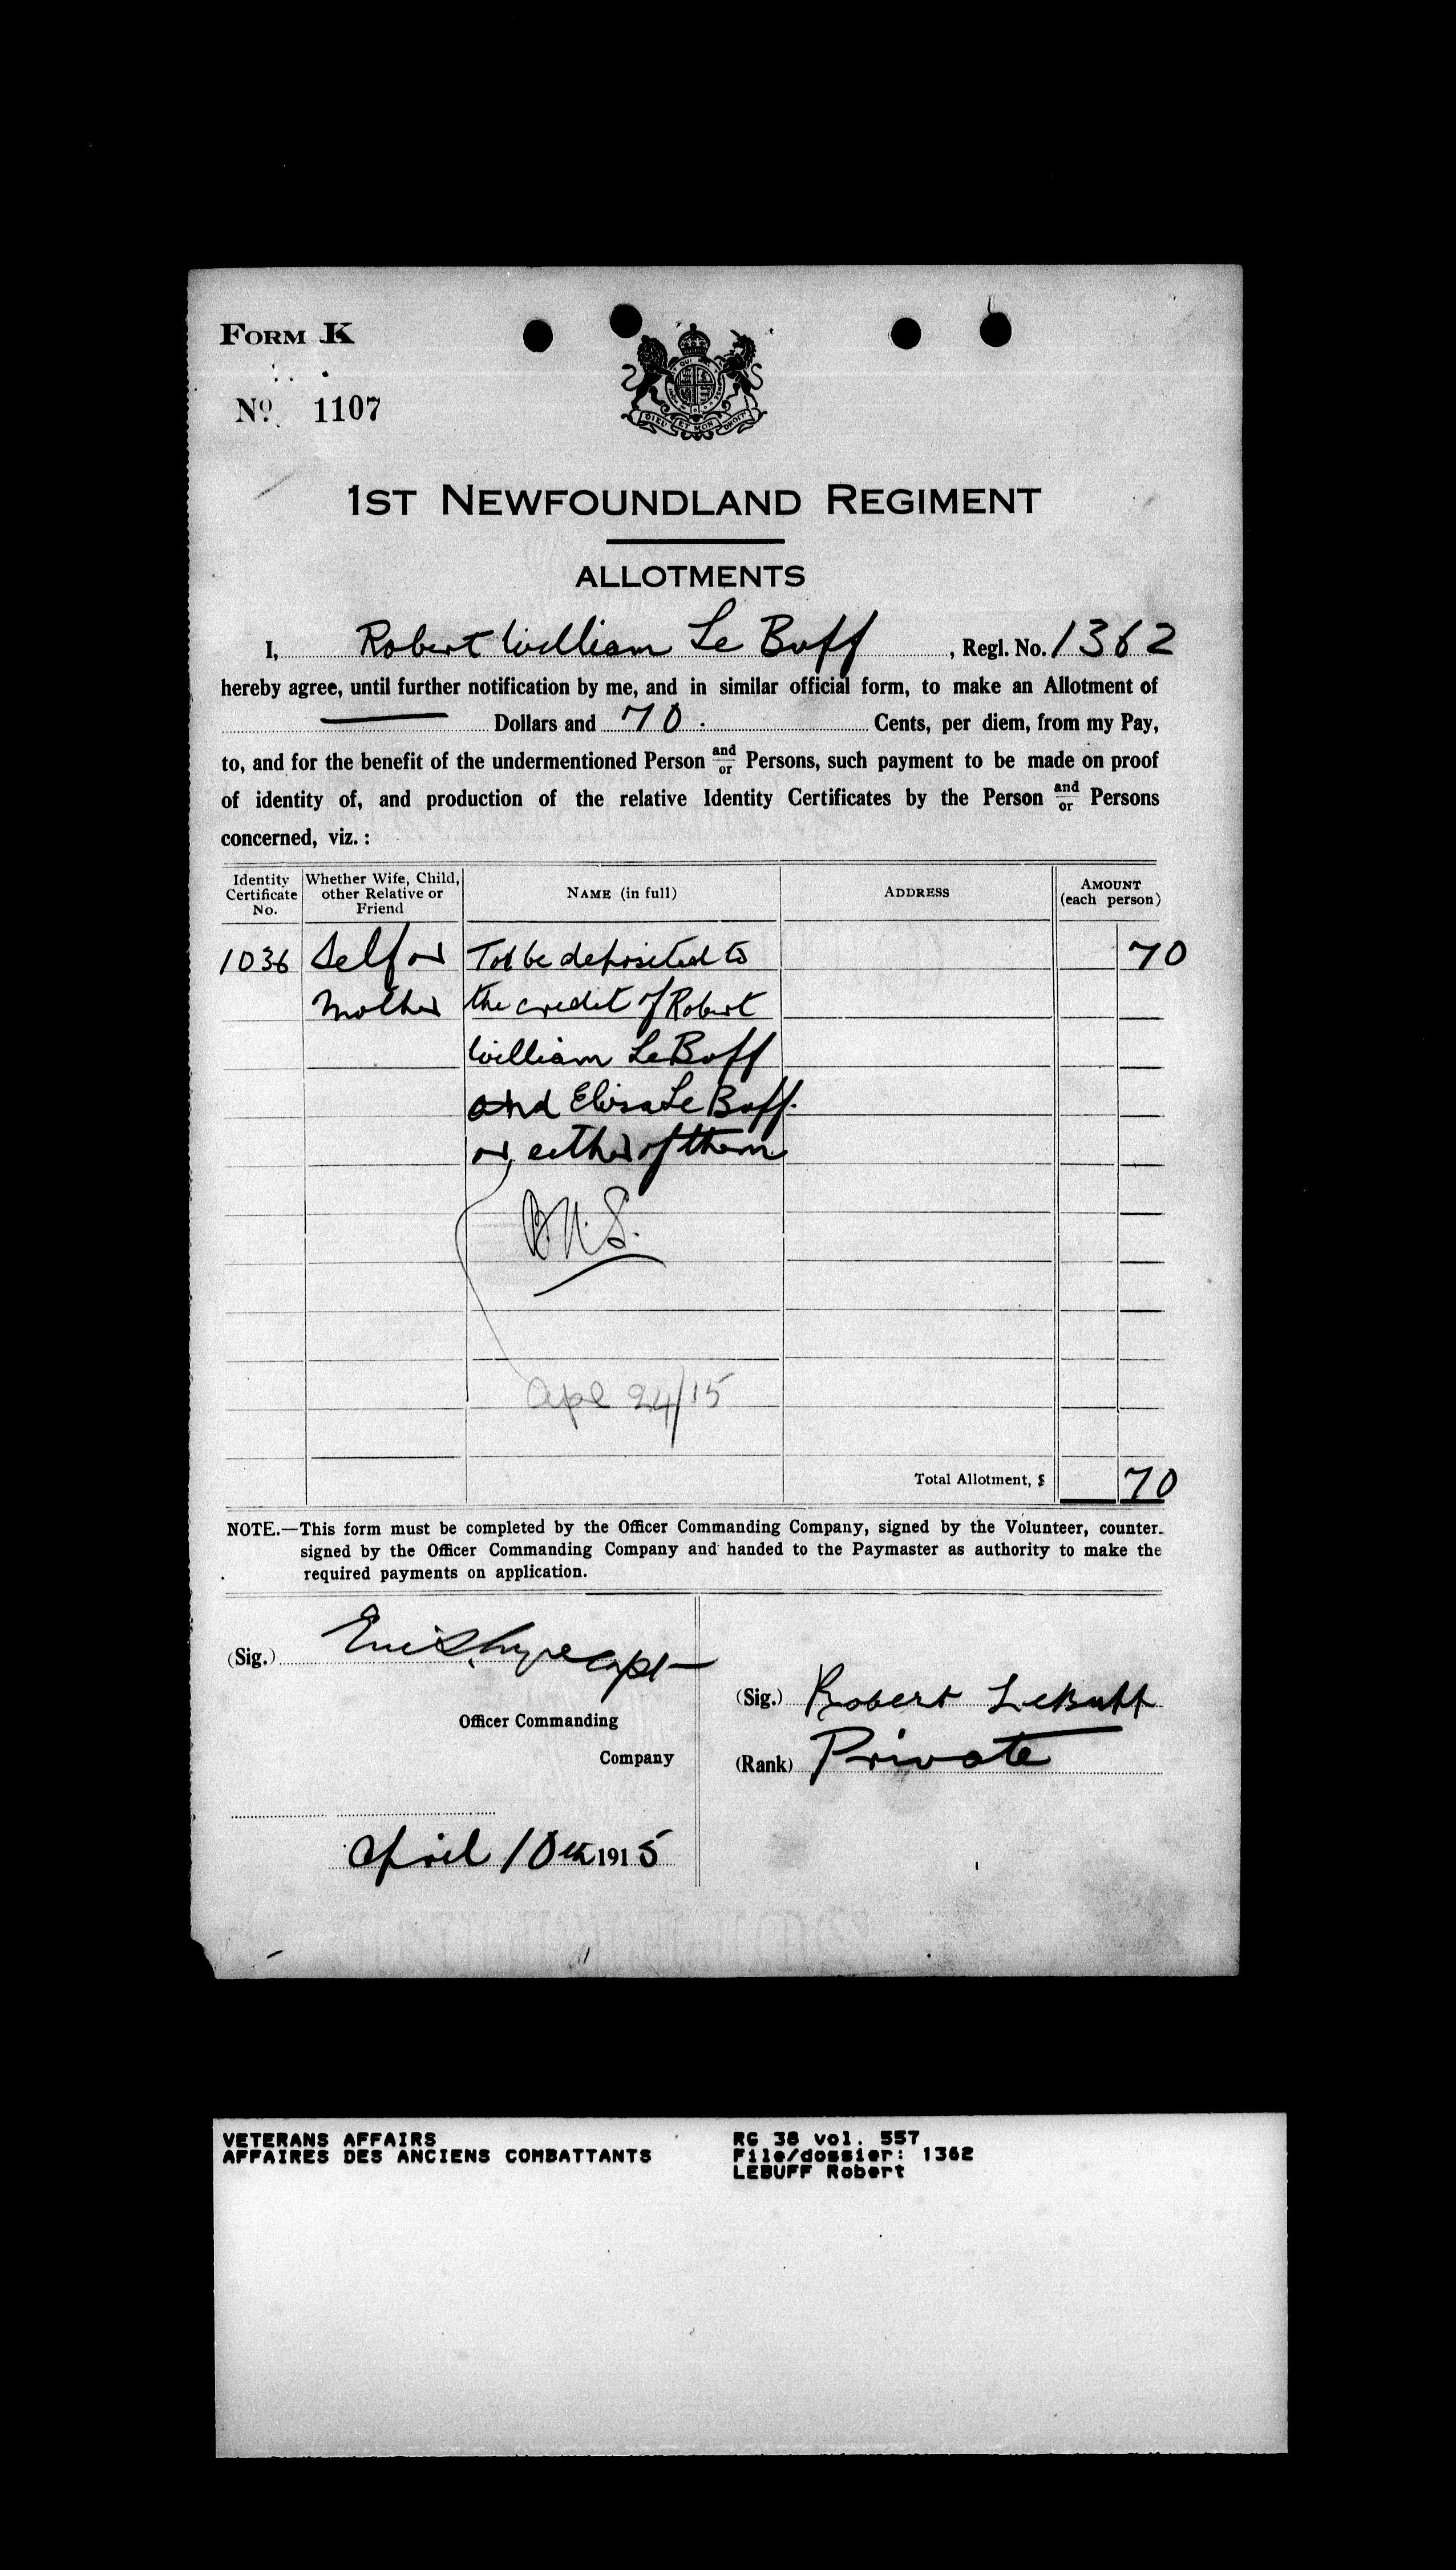 FORM K
No. 1107
DIEU ET MON DROIT
1ST NEWFOUNDLAND REGIMENT
ALLOTMENTS
I, Robert William Le Buff, Regl. No. 1362
hereby agree, until further notification by me, and in similar official form, to make an Allotment of
— Dollars and 70. Cents, per diem, from my Pay,
to, and for the benefit of the undermentioned Person and/or Persons, such payment to be made on proof
of identity of, and production of the relative Identity Certificates by the Person and/or Persons
concerned, viz.:
Identity Certificate No. | Whether Wife, Child, other Relative or Friend | NAME (in full) | ADDRESS | AMOUNT (each person)
1036 Self or To be deposited to 70
Mother the credit of Robert
William LeBuff
and Elisa Le Buff.
or either of them
B.N.S.
Apl 24/15
Total Allotment, $ 70
NOTE.—This form must be completed by the Officer Commanding Company, signed by the Volunteer, counter-
signed by the Officer Commanding Company and handed to the Paymaster as authority to make the
required payments on application.
(Sig.) Capt
Officer Commanding
Company
(Sig.) Robert LeBuff
(Rank) Private
April 10th 1915
VETERANS AFFAIRS
AFFAIRES DES ANCIENS COMBATTANTS
RG 38 vol. 557
File/dossier: 1362
LEBUFF Robert